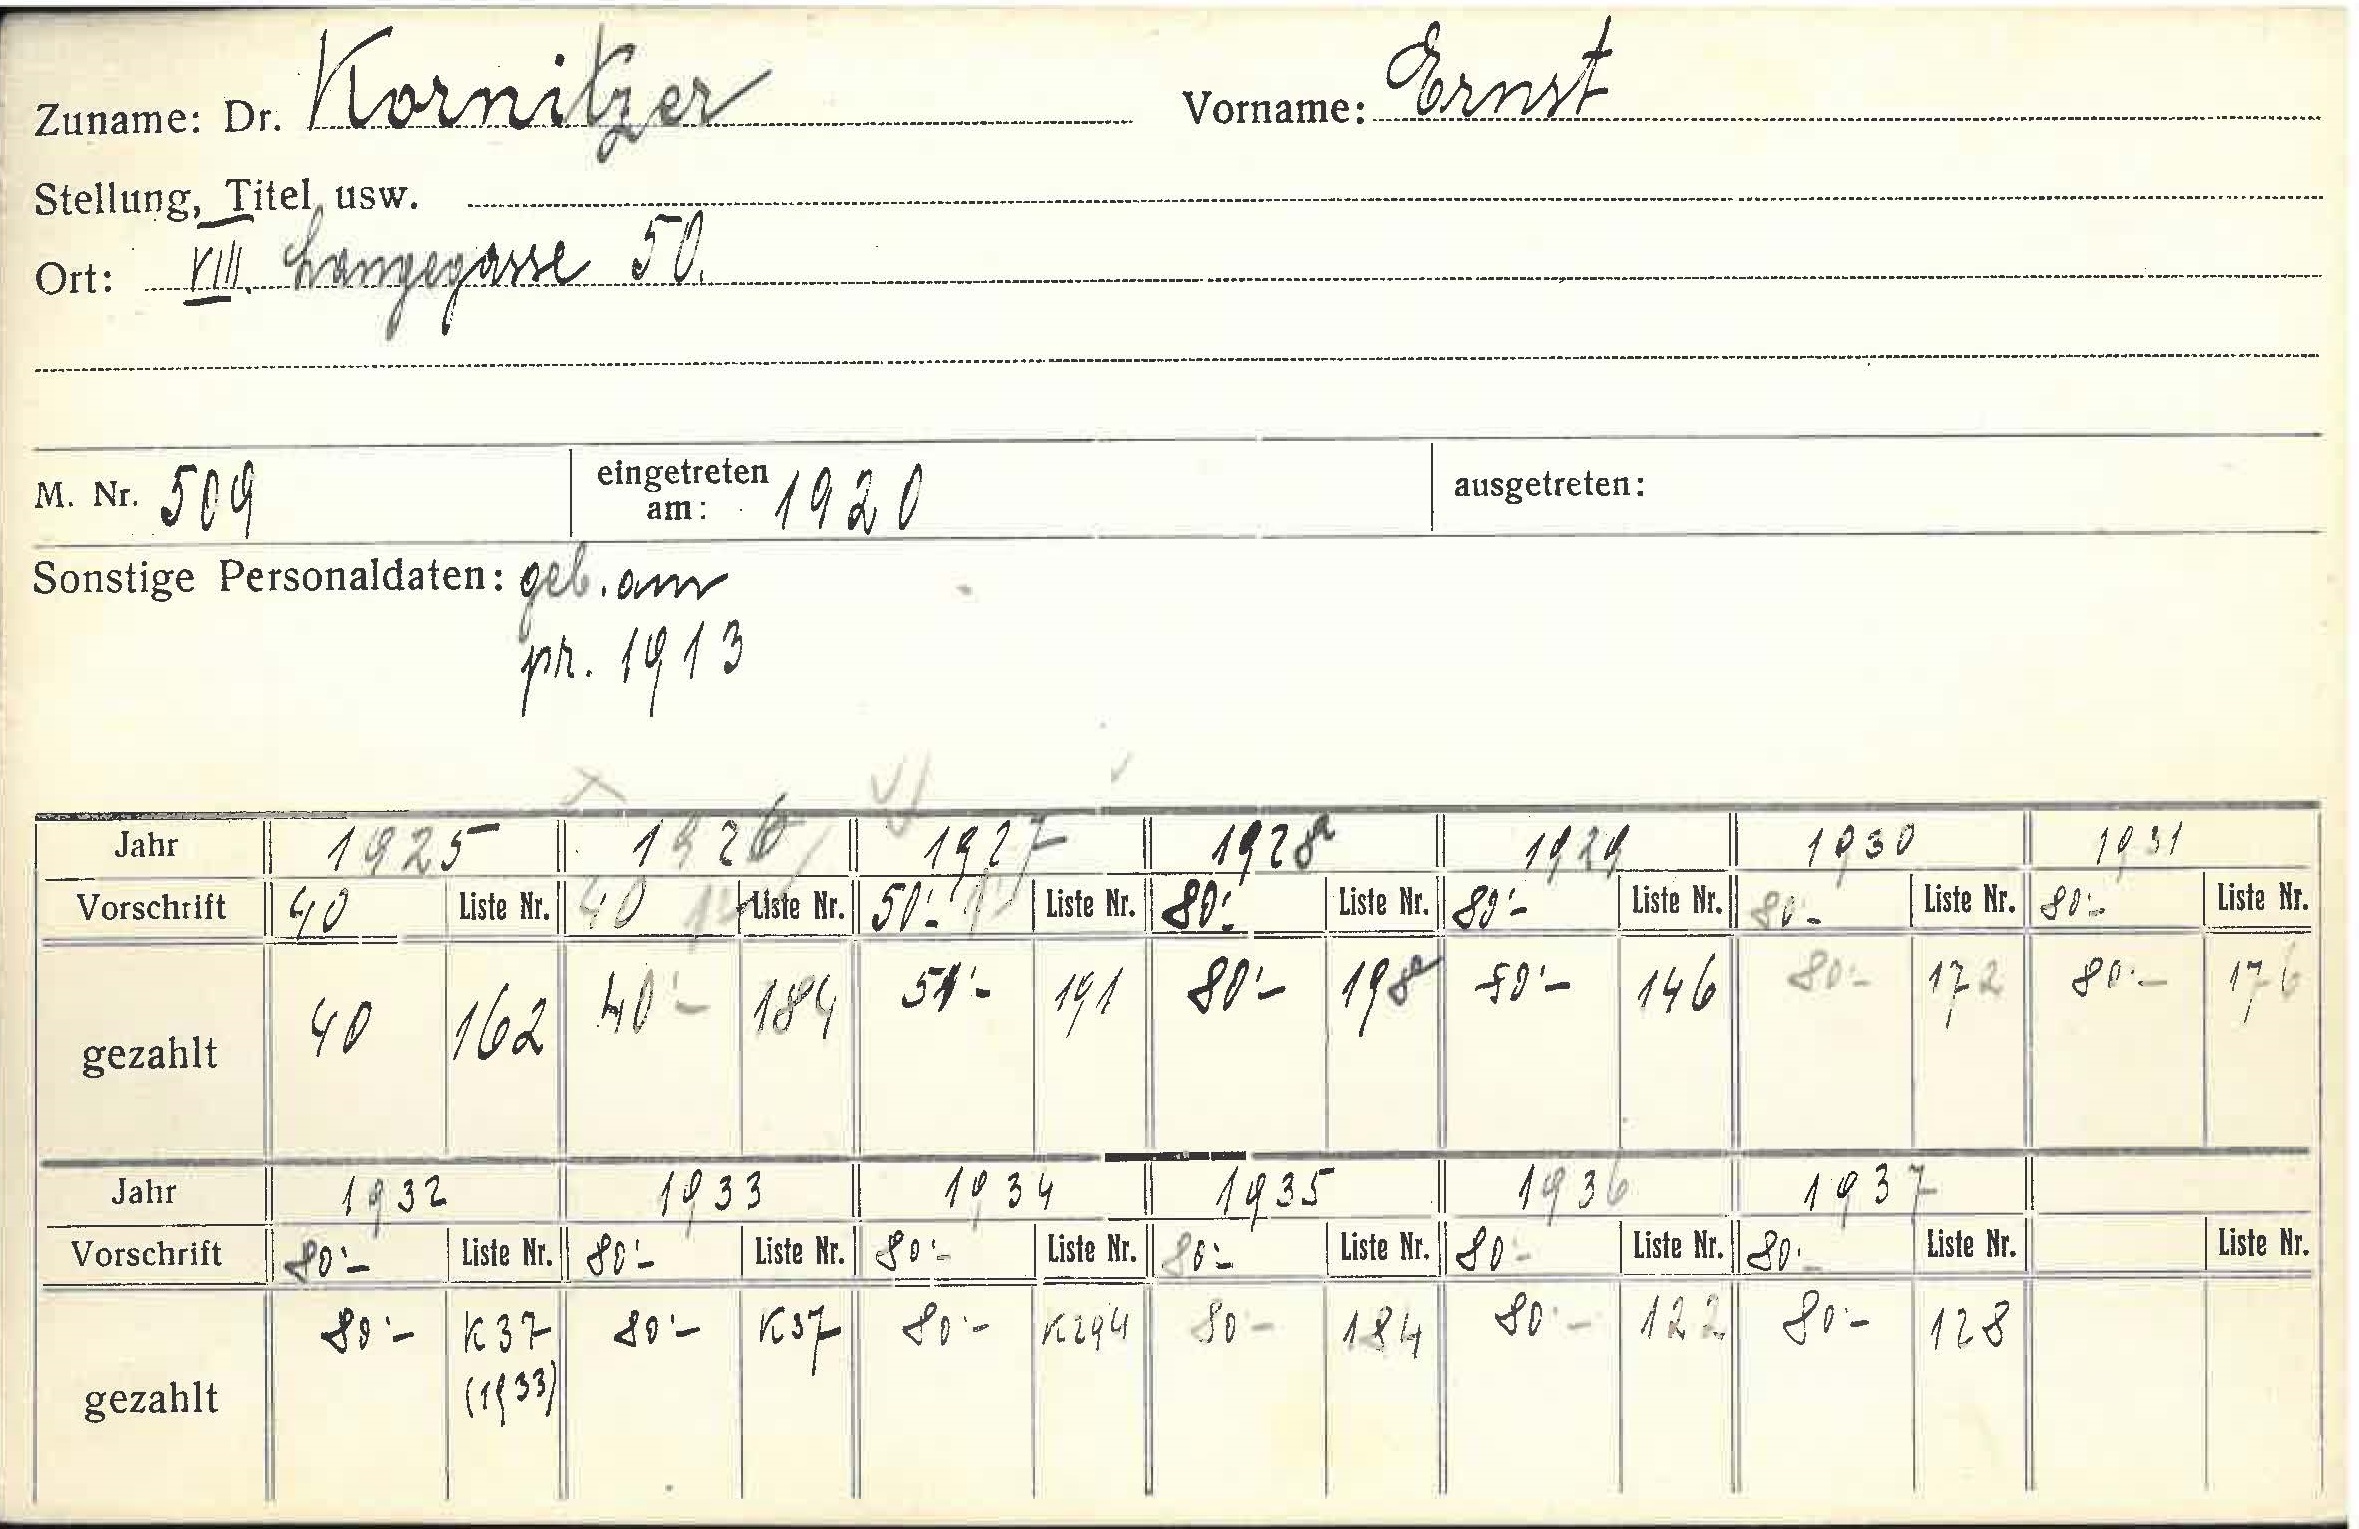 Zuname: Dr. Kornitzer Vorname: Ernst
Stellung, Titel usw.
Ort: VIII. Langegasse 50.
M. Nr. 509 eingetreten am: 1920 ausgetreten:
Sonstige Personaldaten: geb. am
pr. 1913
Jahr 1925 1926 1927 1928 1929 1930 1931
Vorschrift 40 Liste Nr. 40 Liste Nr. 50.- Liste Nr. 80.- Liste Nr. 80.- Liste Nr. 80.- Liste Nr. 80.- Liste Nr.
gezahlt 40 162 40.- 184 191 80.- 198 80.- 146 80.- 172 80.- 176
Jahr 1932 1933 1934 1935 1936 1937
Vorschrift 80.- Liste Nr. 80.- Liste Nr. 80.- Liste Nr. 80.- Liste Nr. 80.- Liste Nr. 80.- Liste Nr. Liste Nr.
gezahlt 80.- K37 80.- K37 80.- K294 80.- 184 80.- 122 80.- 128
(1933)